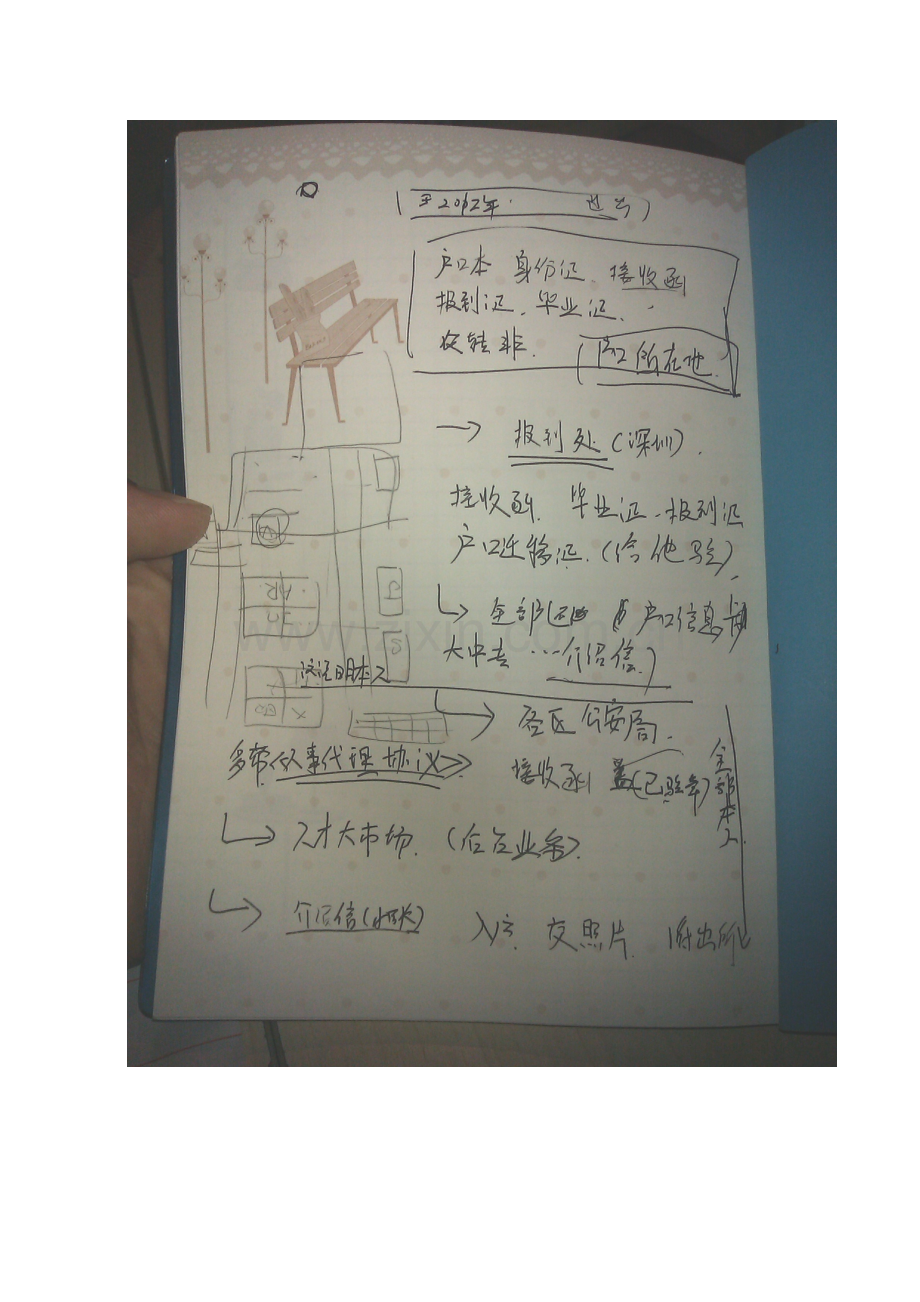 至2012年
户口本 身份证、接收函
报到证、毕业证、
农转非. 户口所在地.
→ 报到处(深圳).
接收函. 毕业证、报到证
户口迁移证.(给他验).
全部 户口信息卡
大中专…介绍信)
登记日期本人
→ 各区公安局.
多带 人事代理协议
接收函 (已验章)
全部本人
→ 人才大市场.(后台业务).
→ 介绍信
入户. 交照片. 派出所
www.zixin.com.cn